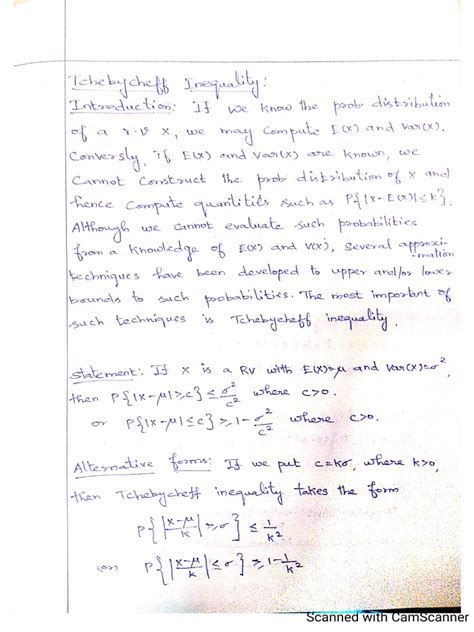 Tchebycheff Inequality:
Introduction: If we know the prob distribution
of a r.v X, we may compute E(X) and Var(X).
Conversly, if E(X) and Var(X) are known, we
Cannot Construct the prob distribution of X and
hence Compute quantities such as P{|X-E(X)|≤k}.
Although we cannot evaluate such probabilities
from a knowledge of E(X) and V(X), Several approxi-
mation
techniques have been developed to upper and/or lower
bounds to such probabilities. The most important of
such techniques is Tchebycheff inequality.
Statement: If X is a RV with E(X)=μ and Var(X)=σ²,
then P{|X-μ|≥c} ≤ σ²/c² where c>0.
or P{|X-μ|≤c} ≥ 1-σ²/c² where c>0.
Alternative forms: If we put c=kσ, where k>0,
then Tchebycheff inequality takes the form
P{|X-μ/k|≥σ} ≤ 1/k²
(or) P{|X-μ/k|≤σ} ≥ 1-1/k²
Scanned with CamScanner